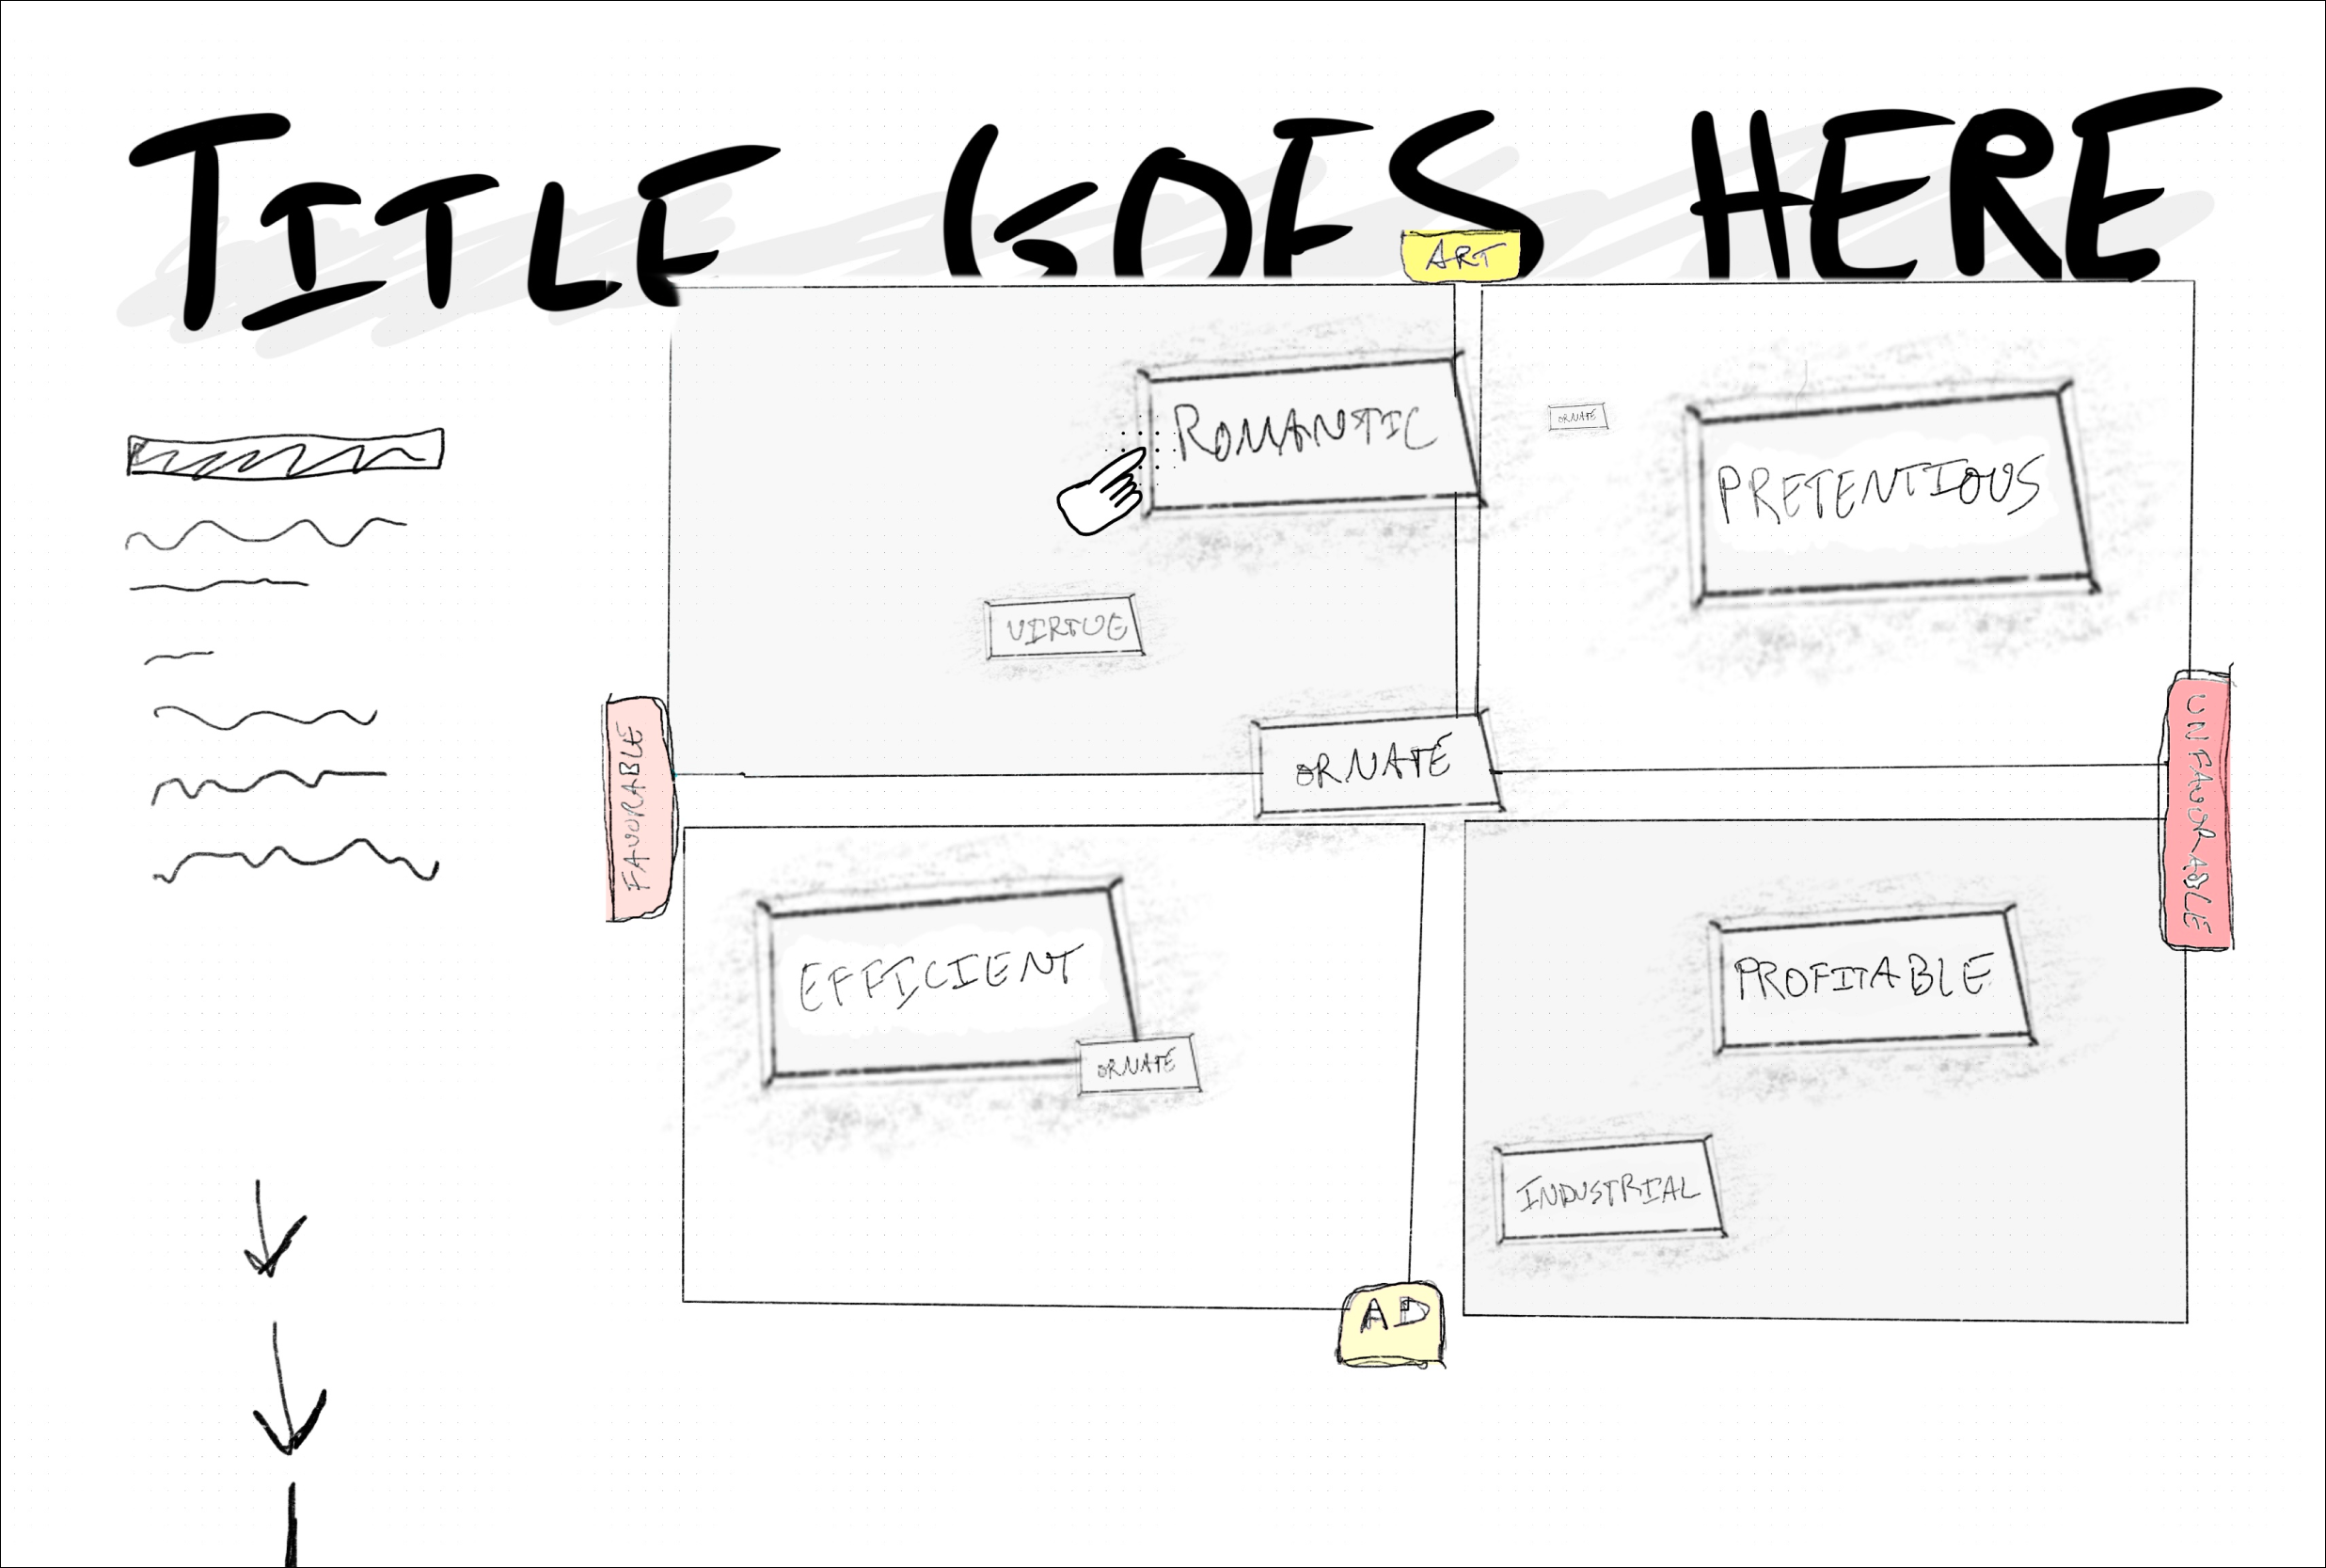 TITLE GOES HERE
ART
ROMANTIC
ORNATE
PRETENTIOUS
VIRTUE
FAVORABLE
ORNATE
UNFAVORABLE
EFFICIENT
ORNATE
PROFITABLE
INDUSTRIAL
AD